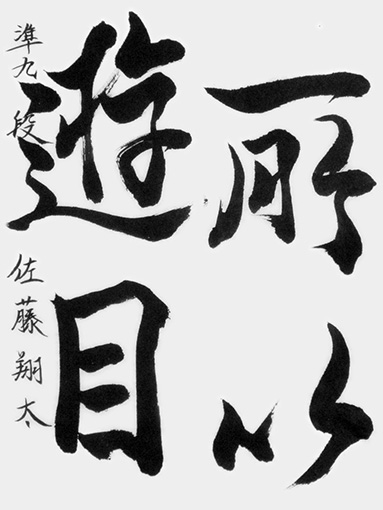 所以
遊目
準九段 佐藤翔太